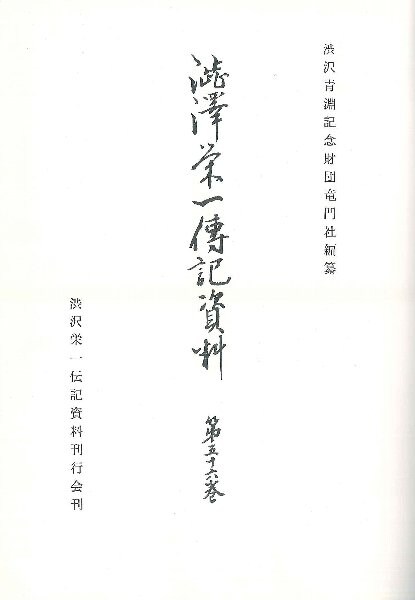 渋沢青淵記念財団竜門社編纂
澁澤栄一傳記資料
第五十六巻
渋沢栄一伝記資料刊行会刊